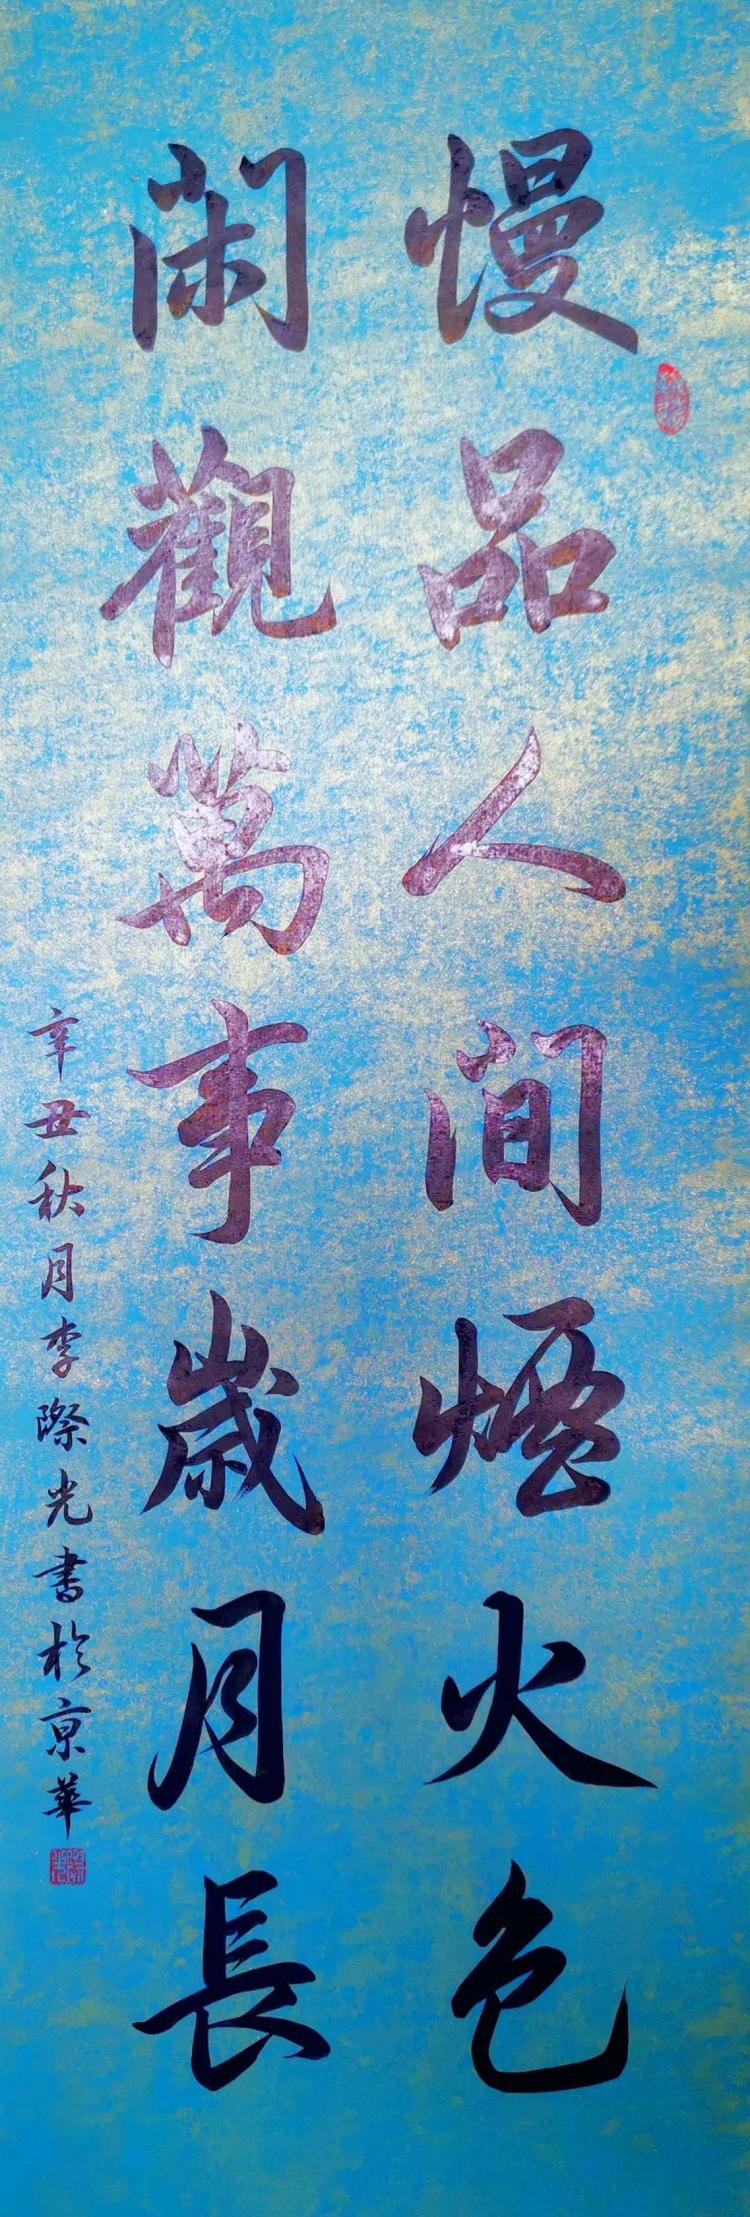 慢品人间煙火色
閑觀萬事歲月長
辛丑秋月李際光書於京華